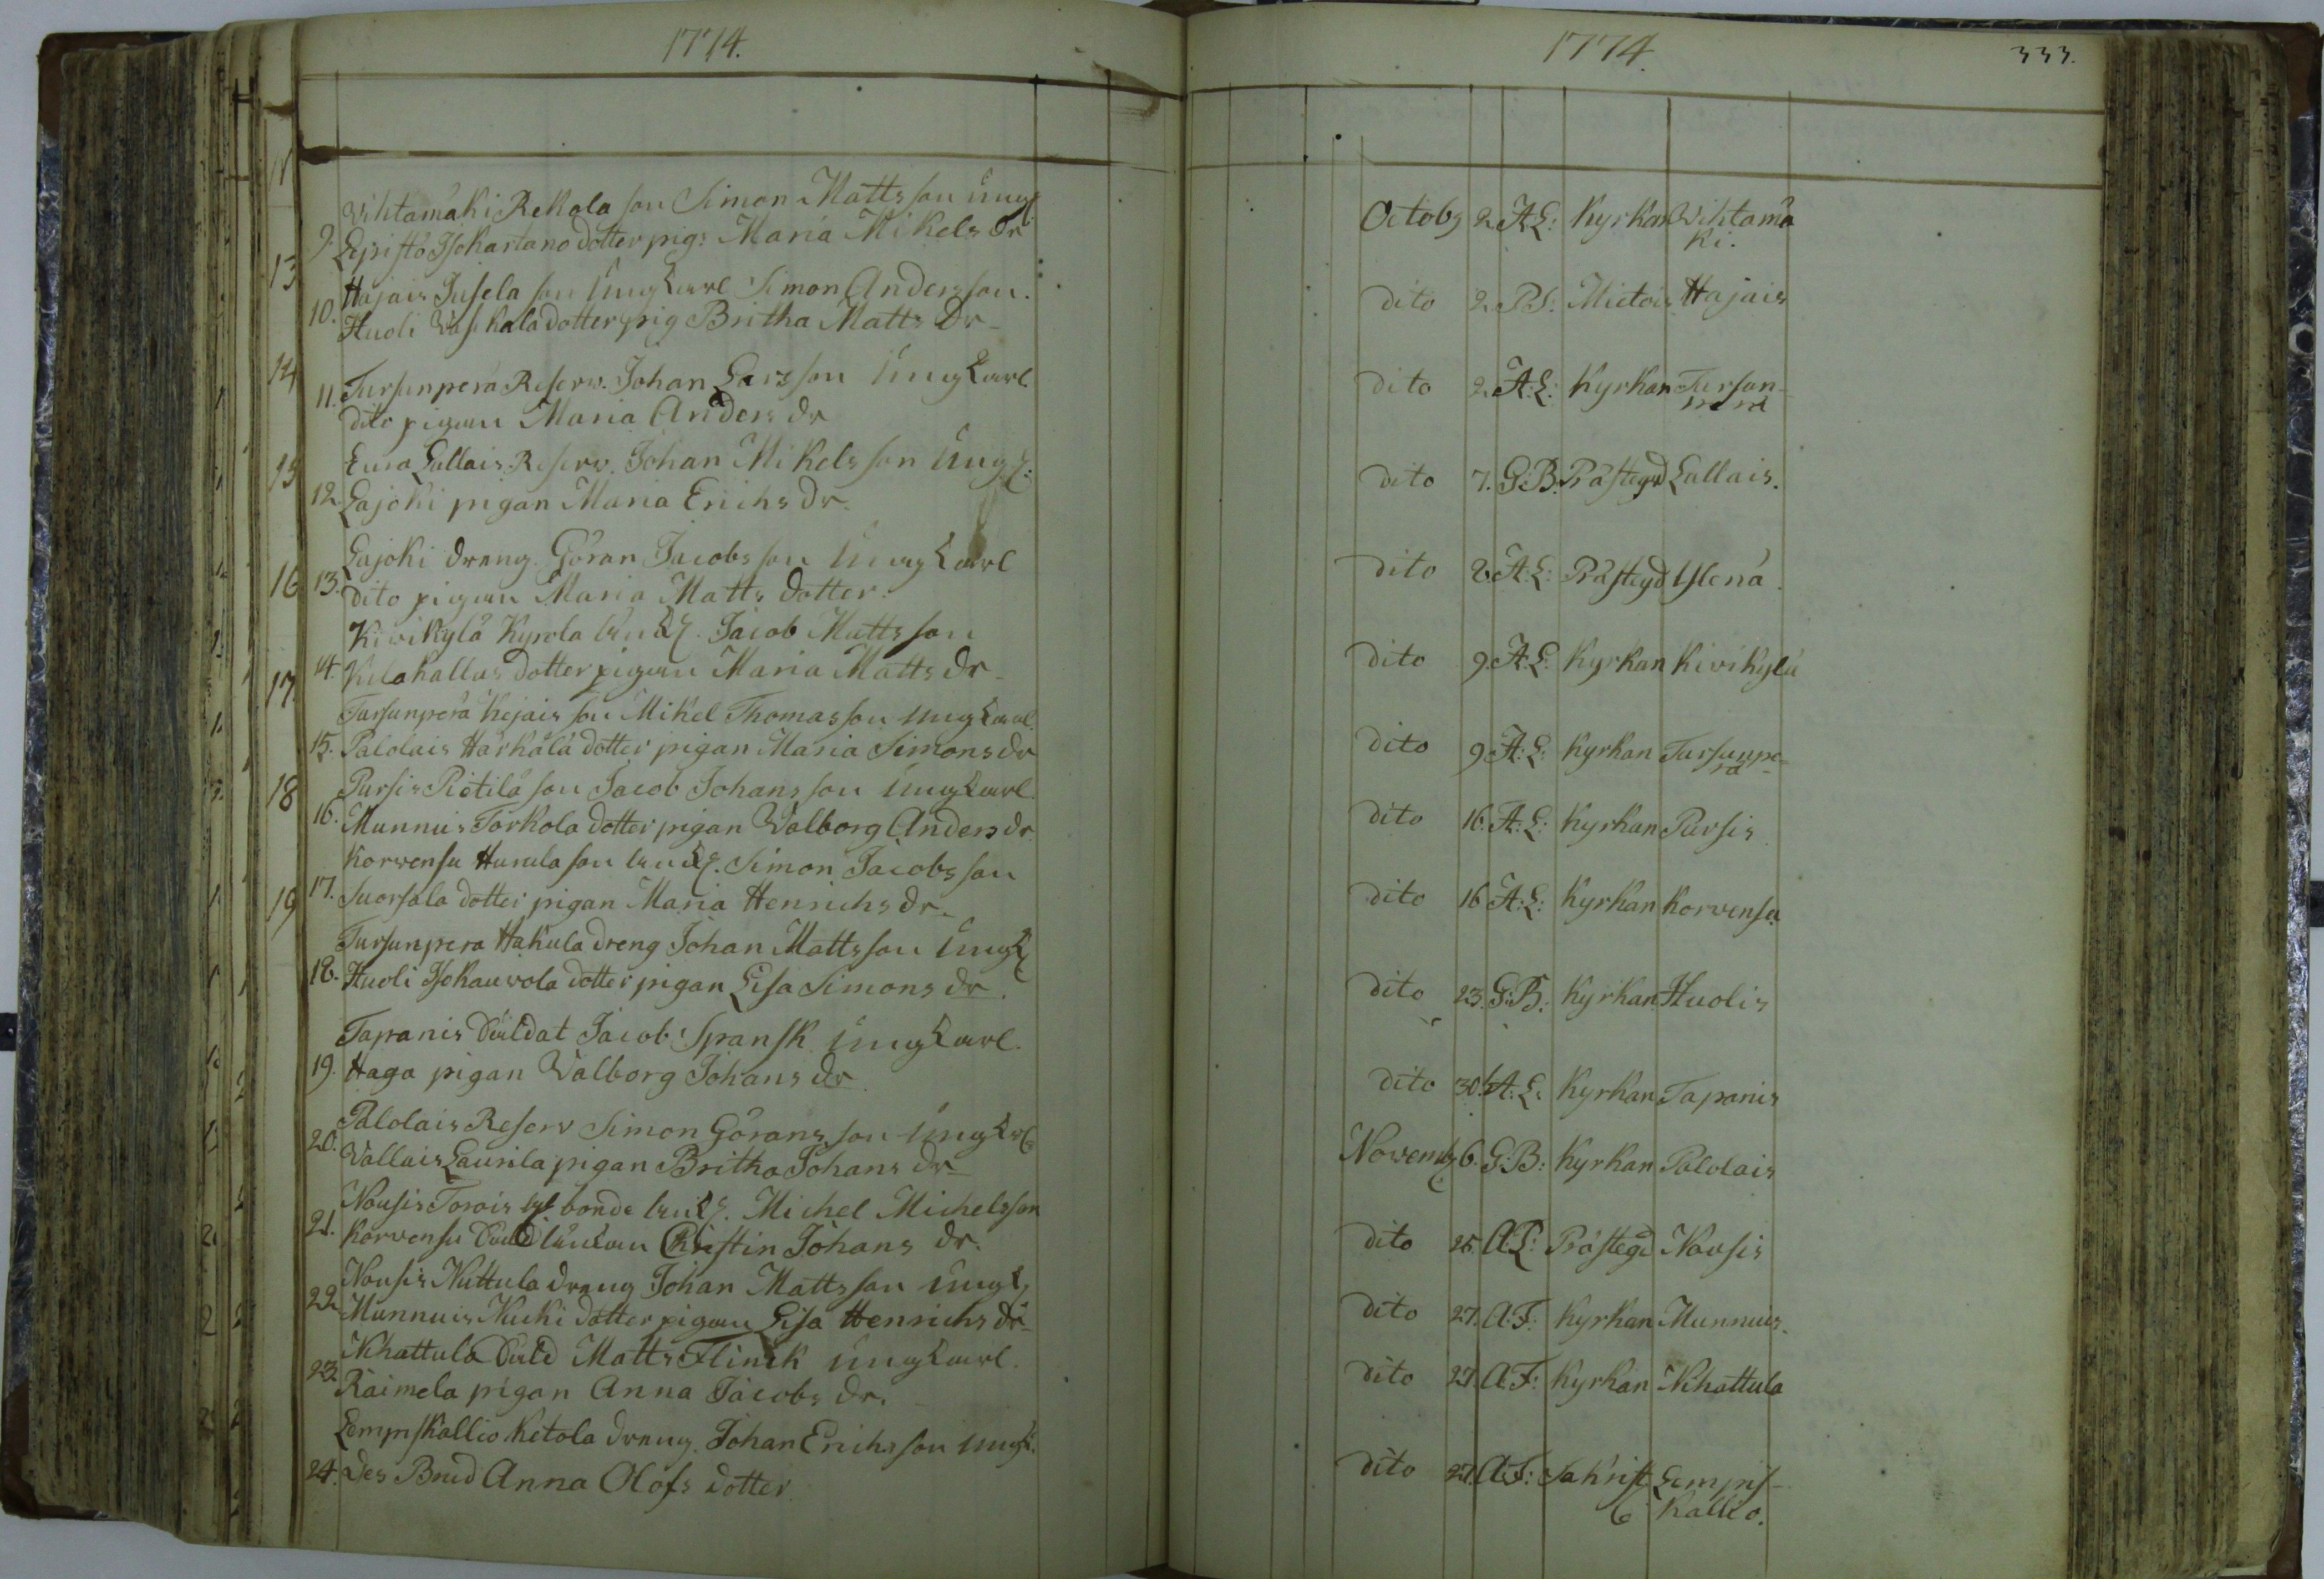 1774.
9. Vihtamäki Rekola son Simon Mattsson ungk
Lepistö Isokartano dotter pig: Maria Mikels dr
Hajais Jusela son ungkarl Simon Andersson.
10. Huoli dotter pig Britha Matts dr
11. Tursunperä Reserv. Johan Larsson ungkarl
dito pigan Maria Anders dr
Eura Lallais Reserv. Johan Mikelsson ungk:
12. Lajoki pigan Maria Erichs dr.
Lajoki dräng Göran Jacobsson ungkarl
13. dito pigan Maria Matts dotter.
Kivikylä Kyrola Jacob Mattsson
14. dotter pigan Maria Matts dr
Tursunperä Kejais son Mikel Thomasson ungkarl
15. Palolais Härkälä dotter pigan Maria Simons dr
Pursis Piötilä son Jacob Johansson ungkarl
16. Munnuis Torkola dotter pigan Walborg Anders dr
Korvensu son Simon Jacobsson
17. Suorsala dotter pigan Maria Henrichs dr.
Tursunpera Hakula dreng Johan Mattsson ungk
18. Huoli Isokauvola dotter pigan Lisa Simons dr.
Tapanis Suldat Jacob Spansk ungkarl.
19. Haga pigan Walborg Johans dr
Palolais Reserv Simon Göransson ungk
20. Vallais Laurila pigan Britha Johans dr
Nousis Torois bonde Michel Michelsson
21. Korvensu Christin Johans dr.
Nousis Nuttula dräng Johan Mattsson ungk
22. Munnuis Kuki dotter pigan Lisa Henrichs dr
Nihattula Suld Matts Flinck ungkarl.
23. Raimela pigan Anna Jacobs dr.
Lempskallio Ketola dräng. Johan Erichsson ungk.
24. Des Brud Anna Olofs dotter
13
14
15
16
17
18
19
1774.
333.
Octobr 2. A:L: Kyrkan Wihtamä
ki.
dito 2. Mietois Hajais
dito 2. A:L: Kyrkan Tursun-
dito 7. G:B: Prästegd Lallais.
dito 8. A:L: Prästegd Yläna.
dito 9. A:L: Kyrkan Kivikylä
dito 9. A:L: Kyrkan Tursunpe-
rä
dito 16. A:L: Kyrkan Pursis
dito 16 A:L: Kyrkan Korvensu
dito 23. G:B: Kyrkan Huolis
dito 30. A:L: Kyrkan Tapanis
Novemb 6. G:B: Kyrkan Palolais
dito 25. A:L: Prästegd Nousis
dito 27. A:F: Kyrkan Munnuis.
dito 27. A:F: Kyrkan Nihattula
dito 27. A:F: Sakrist Lempis-
kallio.